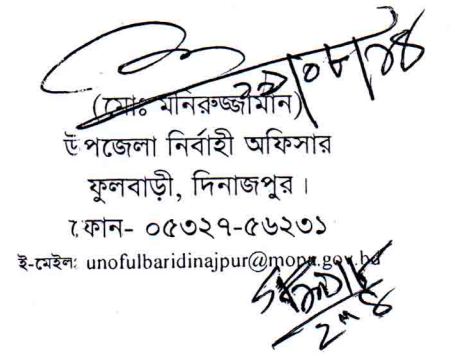 ১৯/০৮/১৪
(মোঃ মনিরুজ্জামান)
উপজেলা নির্বাহী অফিসার
ফুলবাড়ী, দিনাজপুর ।
ফোন- ০৫৩২৭-৫৬২৩১
ই-মেইল: unofulbaridinajpur@mopa.gov.bd